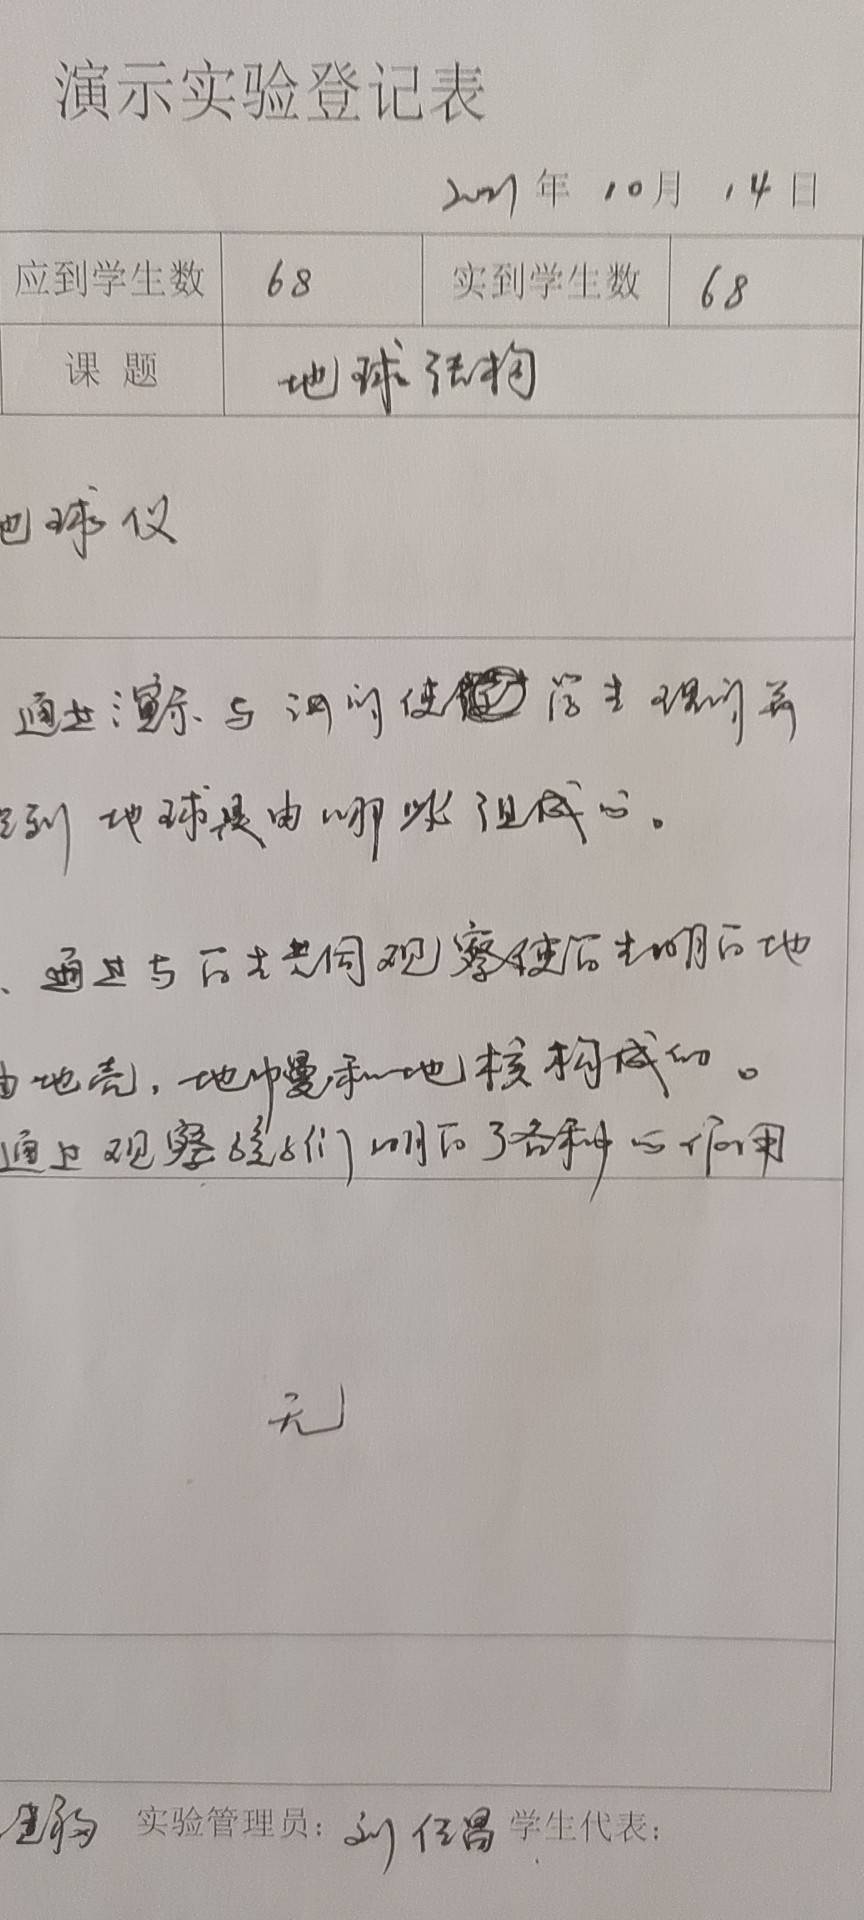 演示实验登记表
2021年 10月 14日
应到学生数 68 实到学生数 68
课 题 地球结构
地球仪
通过演示与 使 学生
到地球是由哪些组成的。
、通过与 共同观察使 明白地
由地壳,地幔和地核构成的。
通过观察 们明白了各种的作用
无
实验管理员:刘任昌 学生代表: